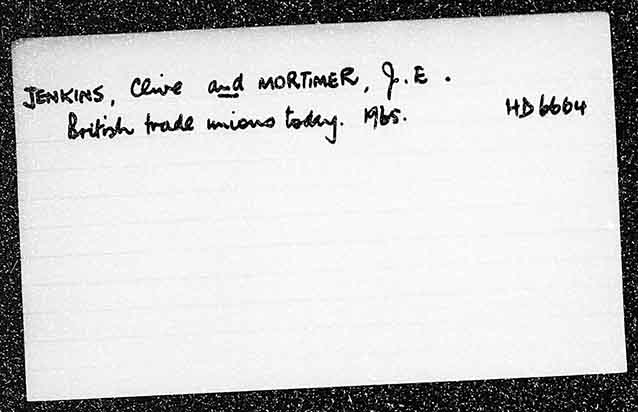 JENKINS, Clive and MORTIMER, J. E.
British trade unions today. 1965. HD6664